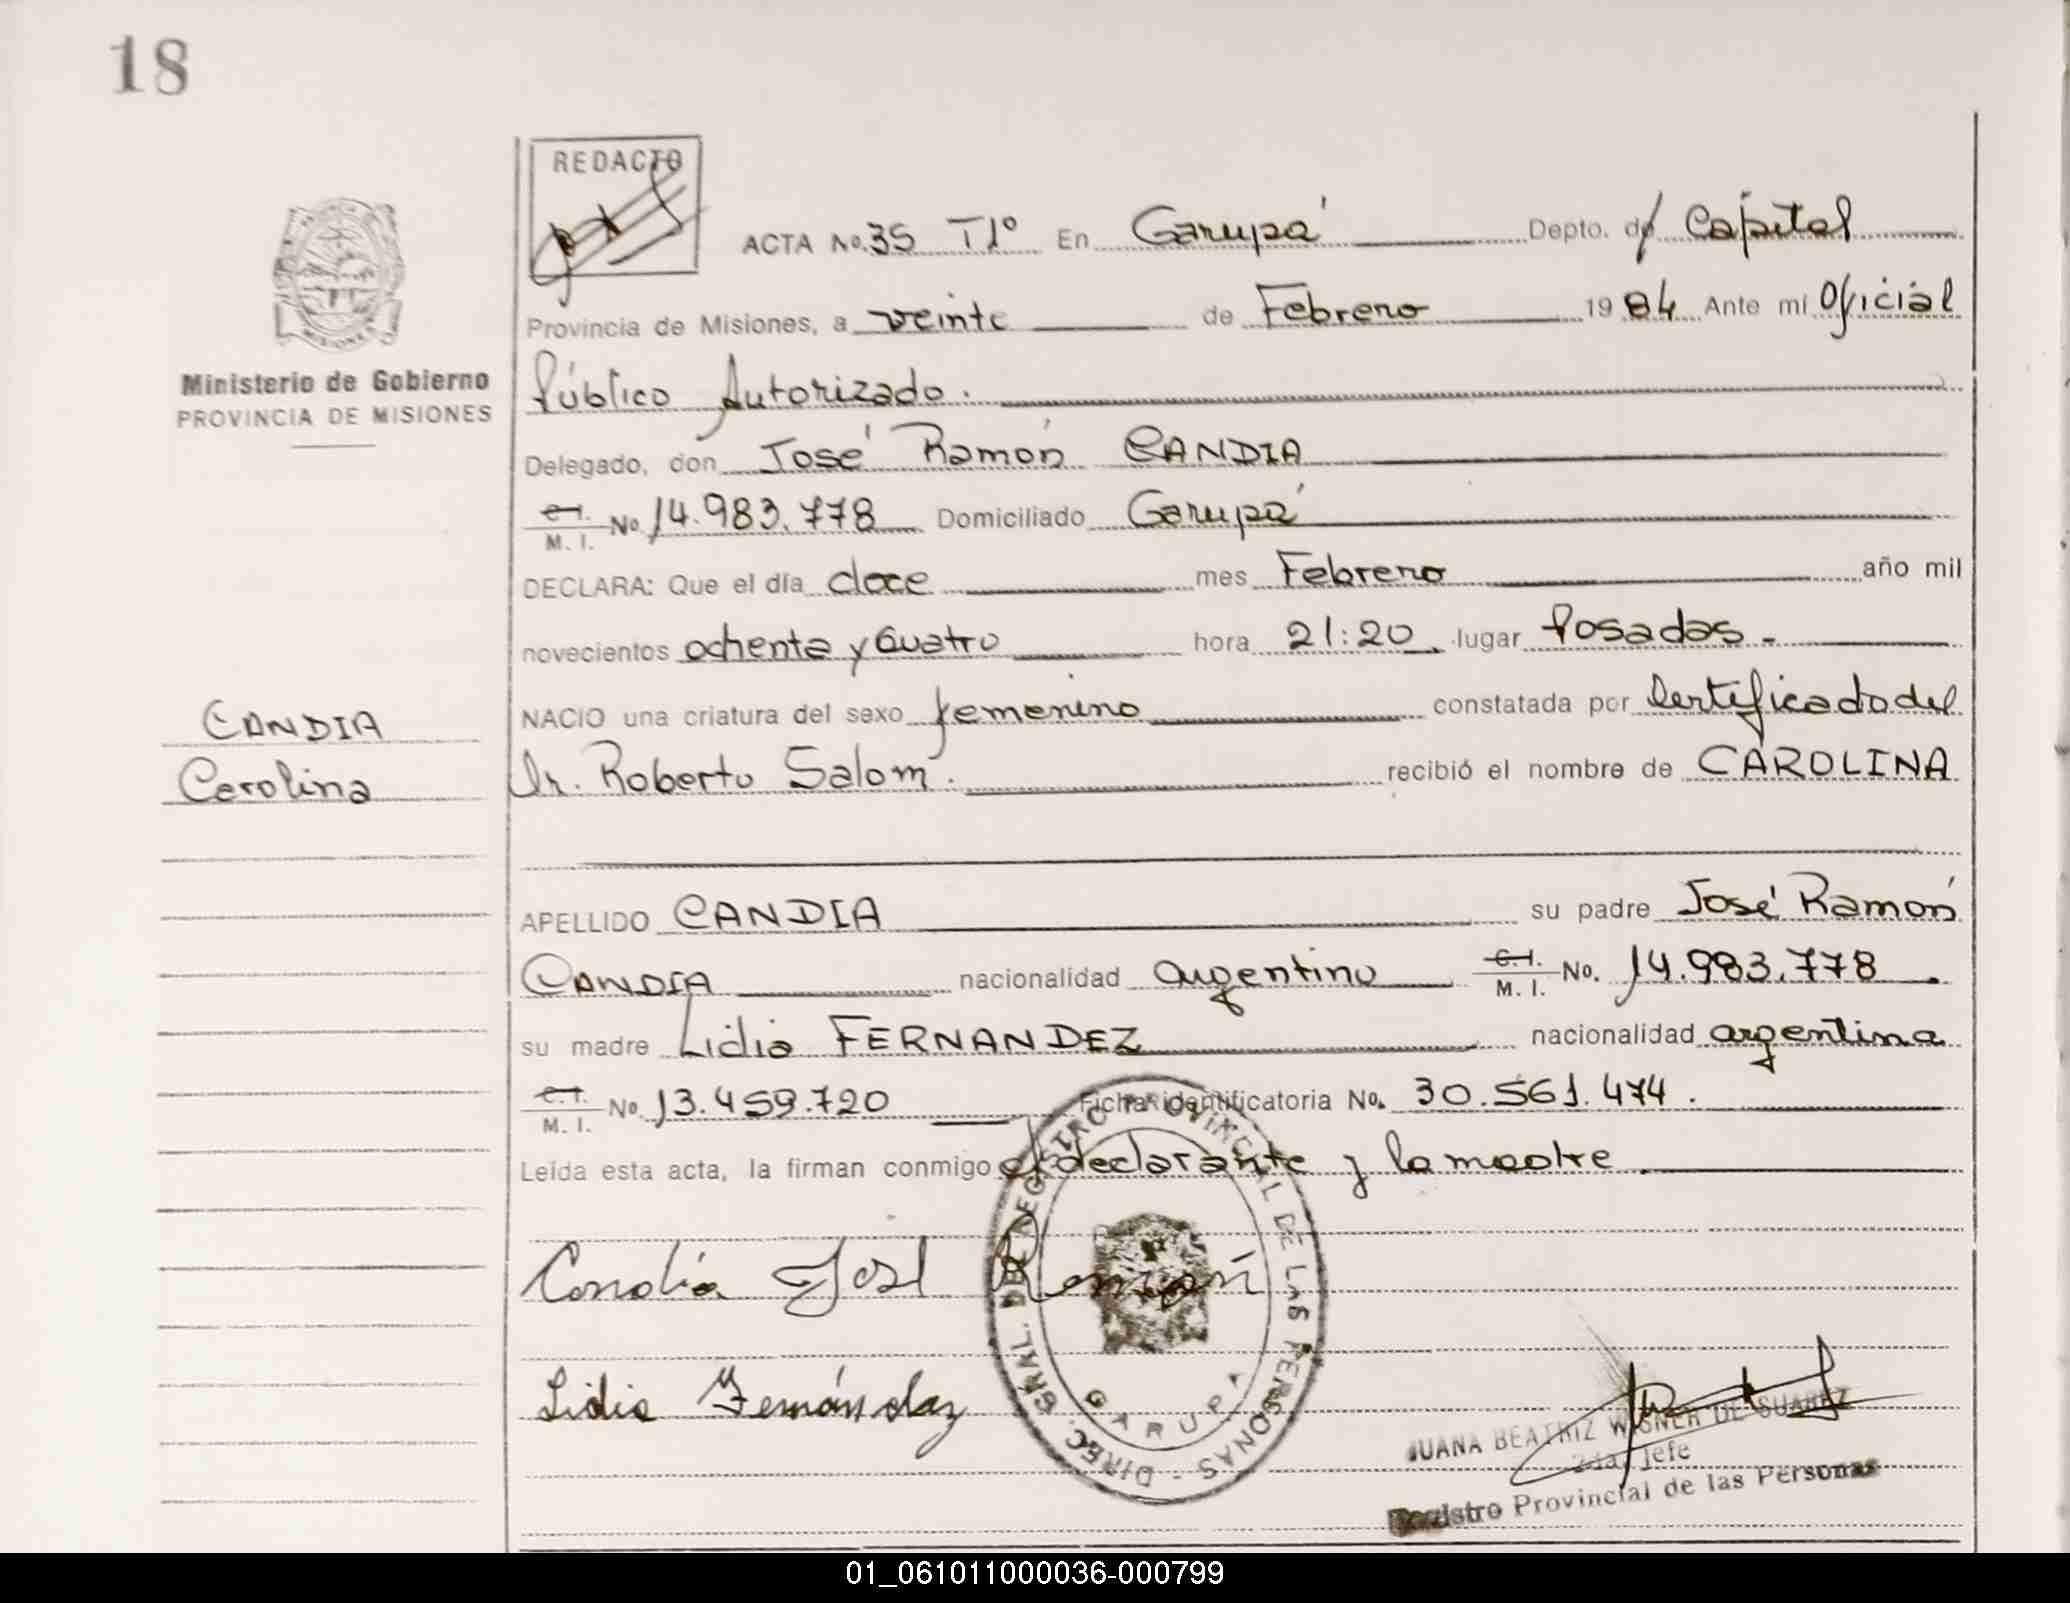 18
REDACTO
ACTA No. 35 T1º En Garupá Depto. d Capital
Provincia de Misiones, a veinte de Febrero 1984 Ante mí Oficial
Ministerio de Gobierno
PROVINCIA DE MISIONES
Público Autorizado.
Delegado, don José Ramón CANDIA
C.I. M. I. No. 14.983.778 Domiciliado Garupá
DECLARA: Que el día doce mes Febrero año mil
novecientos ochenta y cuatro hora 21:20 lugar Posadas.-
NACIO una criatura del sexo femenino constatada por Certificado del
CANDIA
Carolina
Dr. Roberto Salom. recibió el nombre de CAROLINA
APELLIDO CANDIA su padre José Ramón
CANDIA nacionalidad argentino C.I. M. I. No. 14.983.778.
su madre Lidia FERNANDEZ nacionalidad argentina
C.I. M. I. No. 13.459.720 Ficha identificatoria No. 30.561.474.
Leída esta acta, la firman conmigo el declarante y la madre.
Candia José Ramón
Lidia Fernández
DIREC. GRAL. DEL REGISTRO PROVINCIAL DE LAS PERSONAS -
GARUPA
JUANA BEATRIZ WISNER DE SUAREZ
2da. Jefe
Registro Provincial de las Personas
01_061011000036-000799